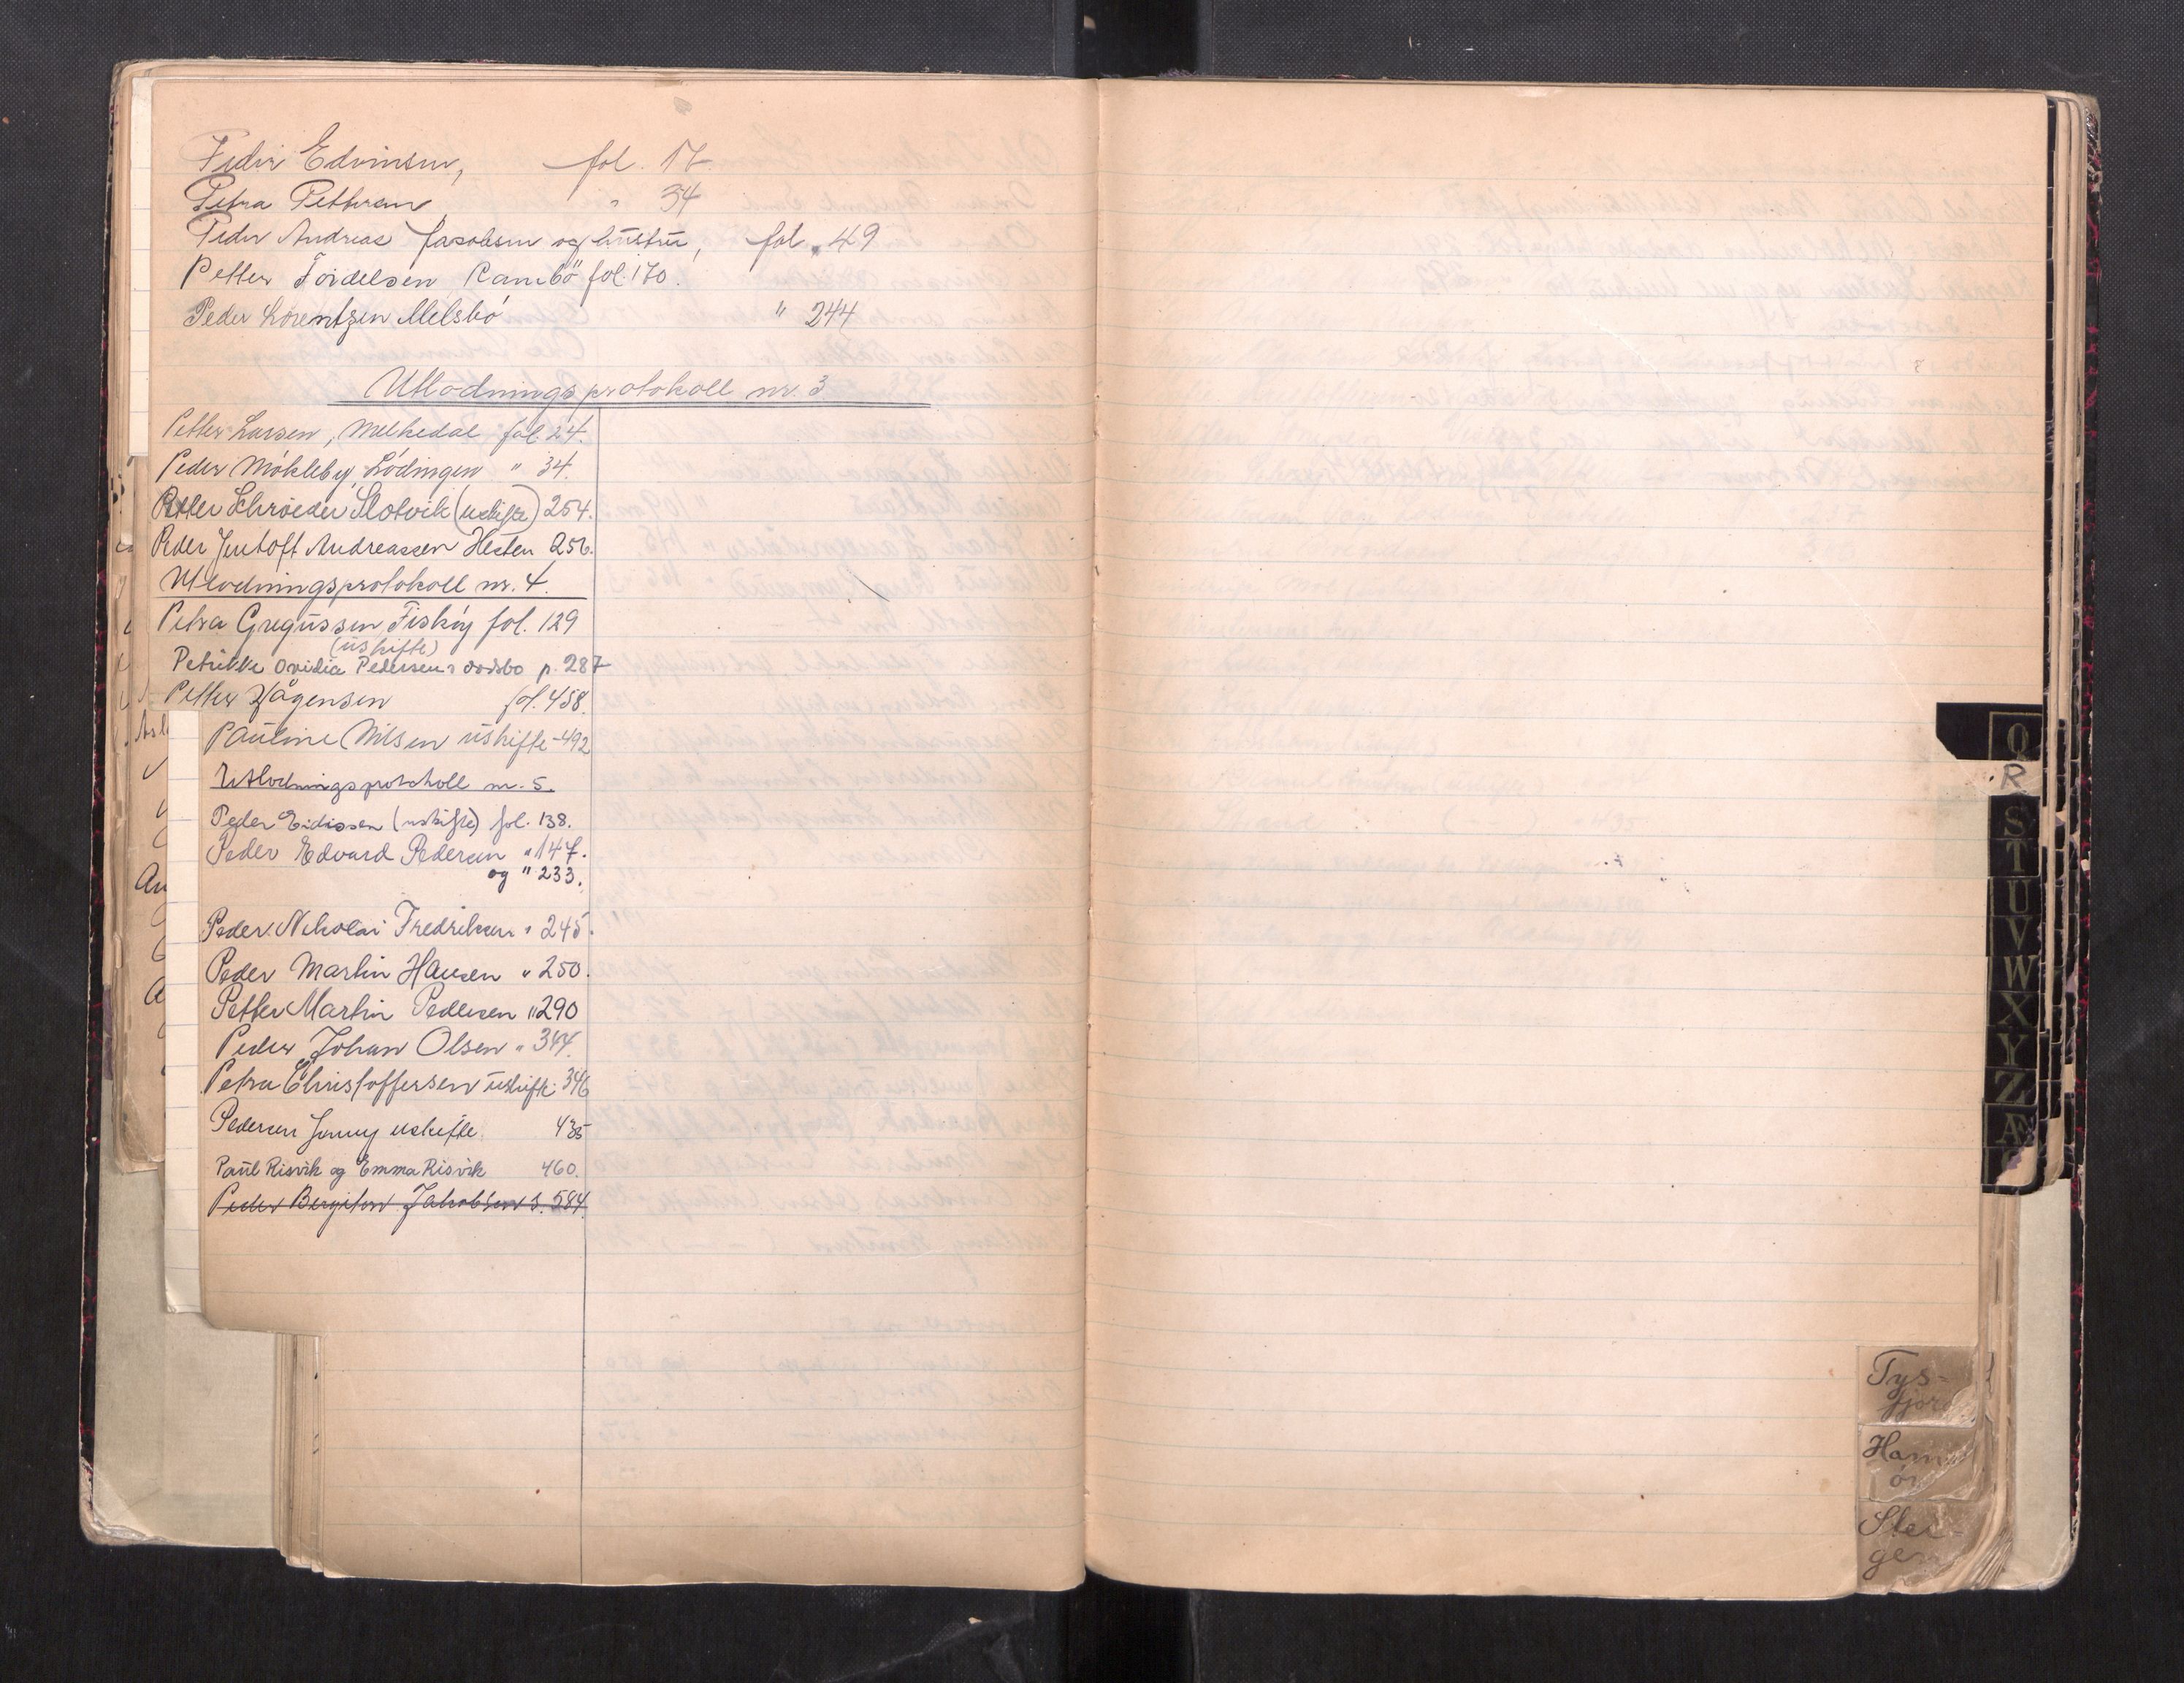 Peder Edvinsen, fol. 17
Petra Pettersen " 34
Peder Andreas Jacobsen og hustru, fol. 49
Petter Tordelsen Rambö fol. 170.
Peder Lorentzen Melsbö " 244
Utlodningsprotokoll nr. 3
Petter Larsen, Melkedal fol. 24.
Peder Mökleby, Lödingen " 34.
Petter Schrøeder Slotvik (uskifte) 254.
Peder Jentoft Andreassen Hesten 256.
Utlodningsprotokoll nr. 4.
Petra Gregussen Fiskøy fol. 129
(uskifte)
Petrikke Ovidia Pedersens dødsbo p. 287
Petter Hågensen fol. 458.
Pauline Nilsen uskifte - 492
Utlodningsprotokoll nr. 5.
Peder Eidissen (uskifte) fol. 138.
Peder Edvard Pedersen " 147.
og " 233.
Peder Nikolai Fredriksen " 245.
Peder Martin Hansen " 250.
Petter Martin Pedersen " 290
Peder Johan Olsen " 344.
Petra Christoffersen uskifte: 346
Pedersen Jenny uskifte 435
Paul Risvik og Emma Risvik 460.
Peder Bergiton Jakobsen s. 584.
Q
R
S
T
U
V
W
X
Y
Z
Æ
Tys-
fjord
Ham
ör
Stei-
gen